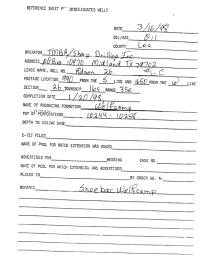 REFERENCE SHEET FOR UNDESIGNATED WELLS
DATE 3/16/98
OIL/GAS Oil
COUNTY Lea
OPERATOR TMBR/Sharp Drilling Inc
ADDRESS POBox 10970 Midland Tx 79702
LEASE NAME, WELL NO. 26 - C
FOOTAGE LOCATION, 990 FROM THE S LINE AND 1650 FROM THE W LINE
SECTION 26 TOWNSHIP 16S RANGE 35E
COMPLETION DATE 1/20/98
NAME OF PRODUCING FORMATION Wolfcamp
TOP OF PERFORATIONS 10244 - 10258
DEPTH TO CASING SHOE
C-123 FILED
NAME OF POOL FOR WHICH EXTENSION WAS ASKED
ADVERTISED FOR HEARING CASE NO.
NAME OF POOL FOR WHICH EXTENSION WAS ADVERTISED
PLACED IN BY ORDER NO. R-
REMARKS Shoebar Wolfcamp